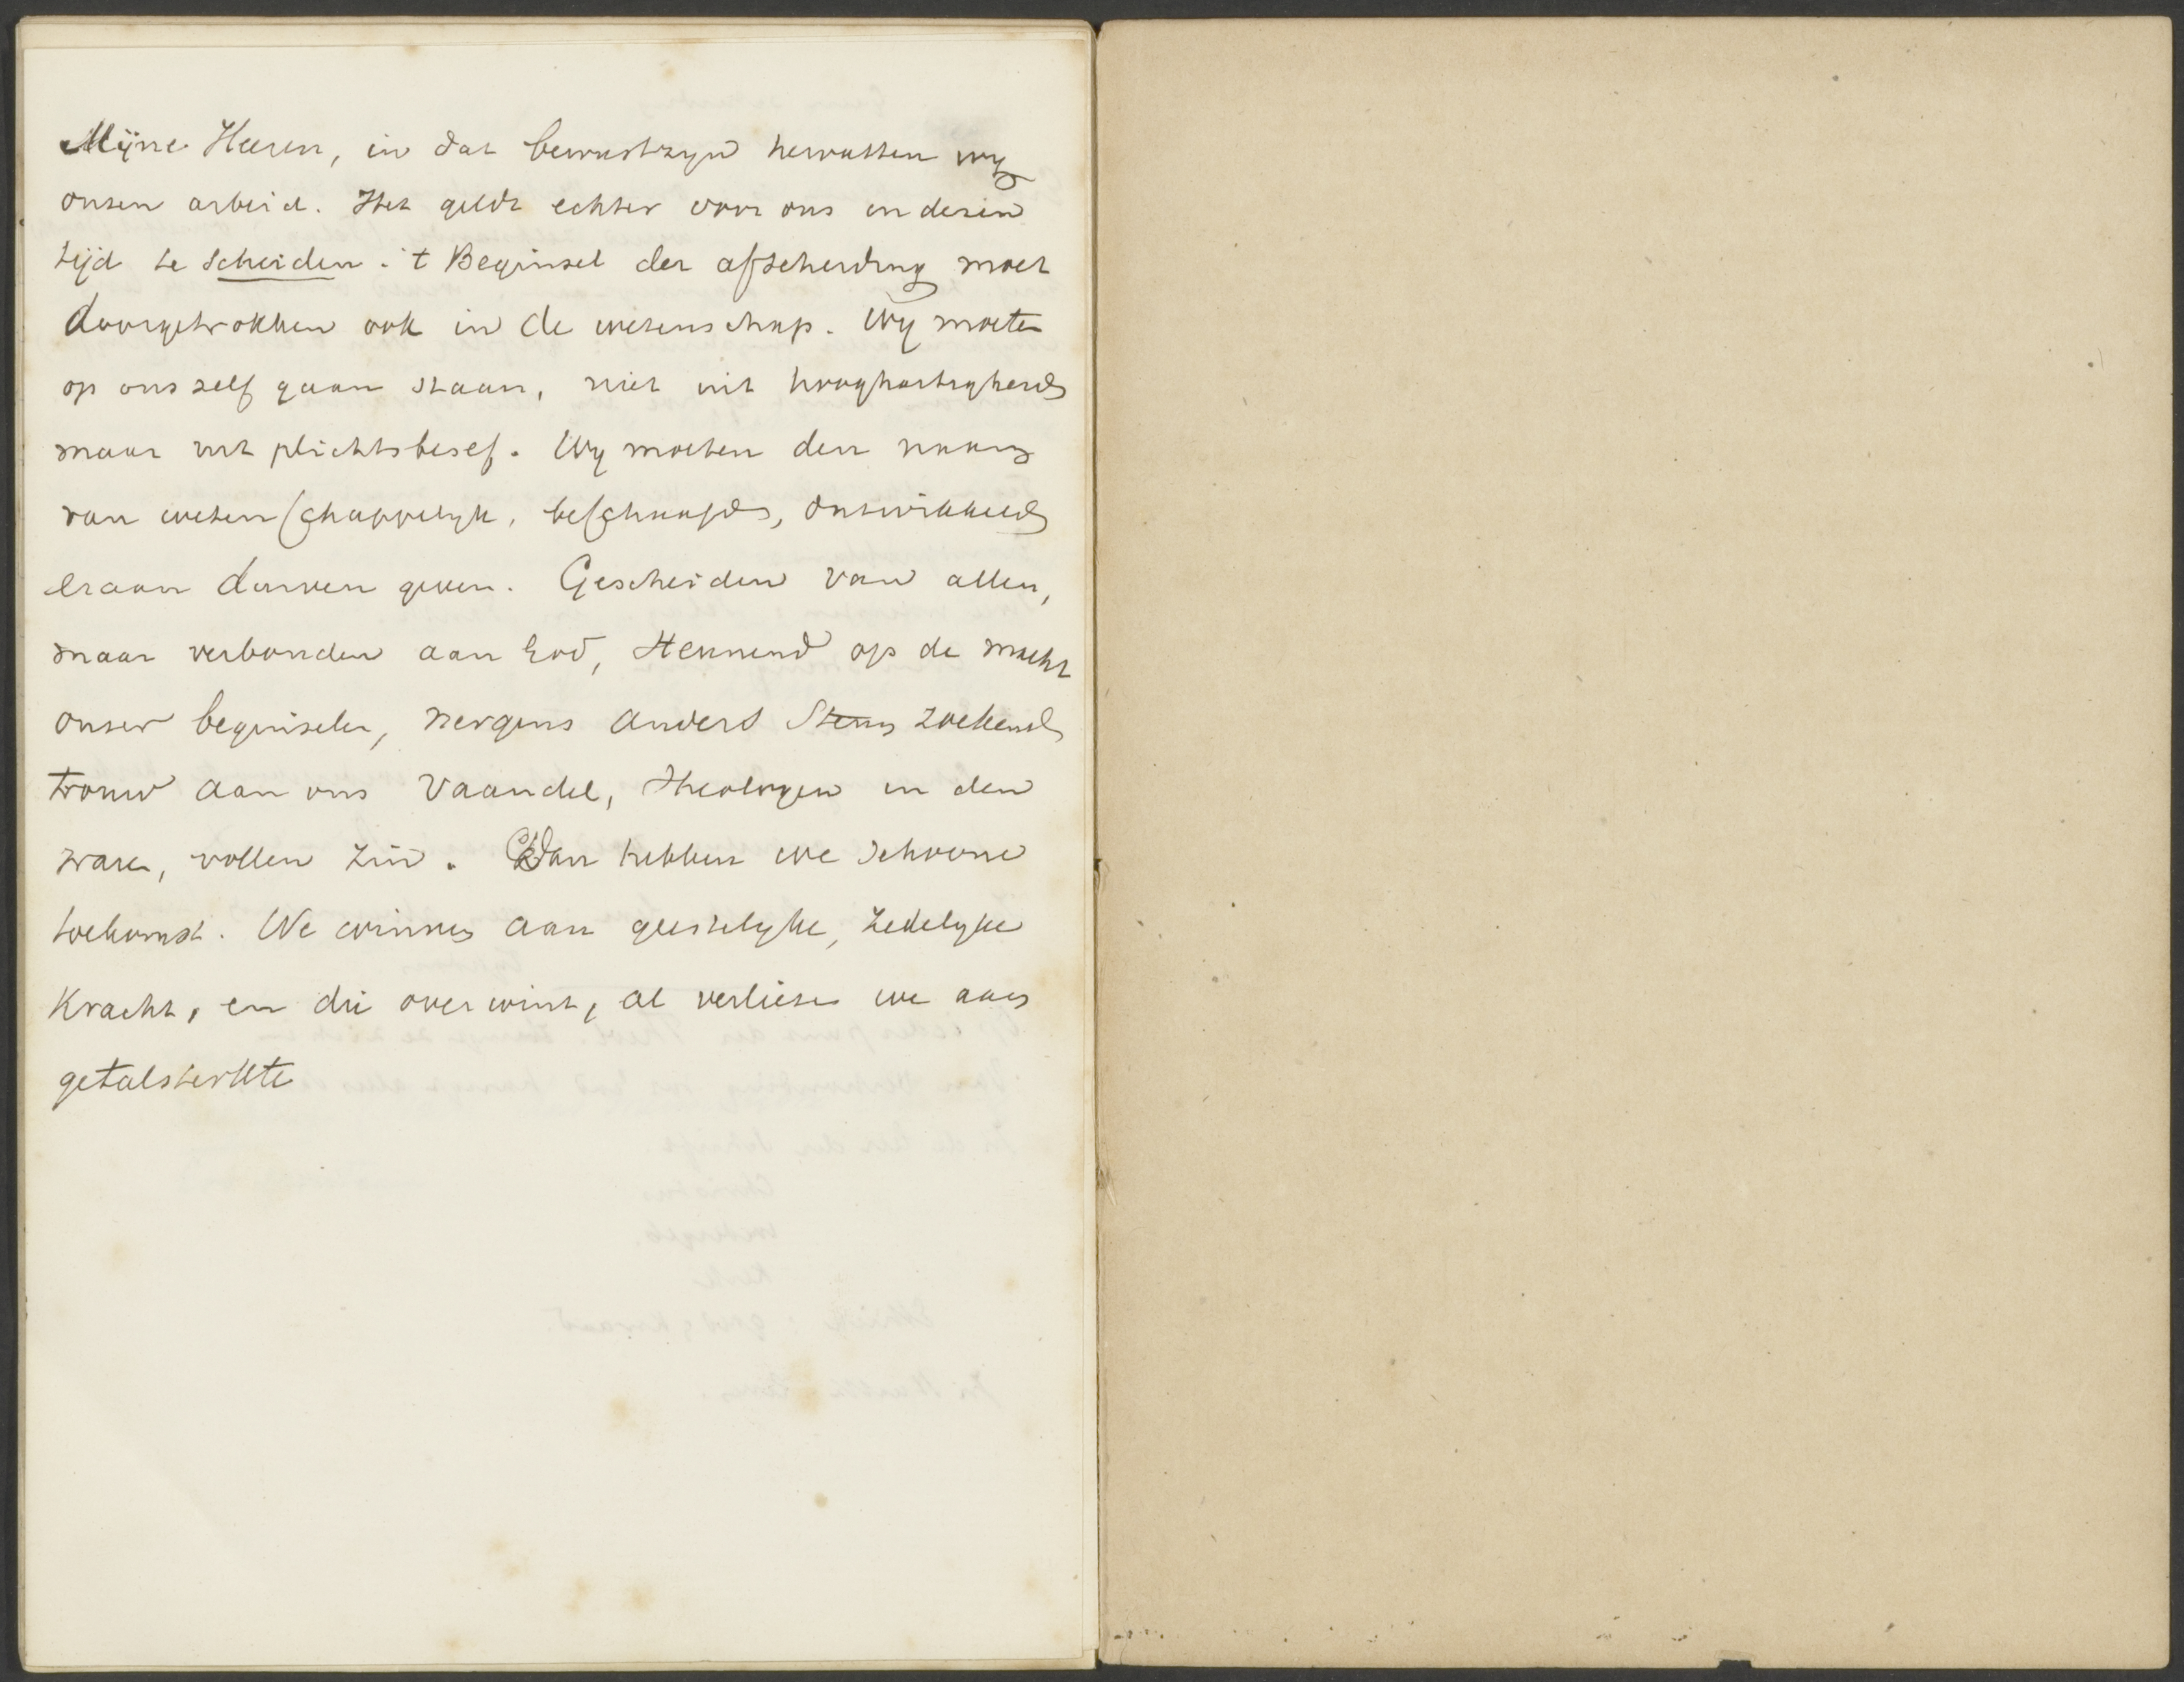 Mijne Heeren, in dat bewustzyn hervatten wy
onzen arbeid. Het geldt echter voor ons in dezen
tijd te scheiden. 't Beginsel der afscheiding moet
doorgetrokken ook in de wetenschap. Wy moeten
op ons zelf gaan staan, niet uit hooghartigheid
maar uit plichtsbesef. Wy moeten den naam
van wetenschappelyk, beschaafd, ontwikkeld
eraan durven geven. Gescheiden van allen,
maar verbonden aan God, steunend op de macht
onzer beginselen, nergens anders steun zoekend
trouw aan ons vaandel, Theologen in den
waren, vollen zin. Dan hebben we schoone
toekomst. We winnen aan geestelyke, zedelyke
kracht, en die overwint, al verliezen we aan
getalsterkte